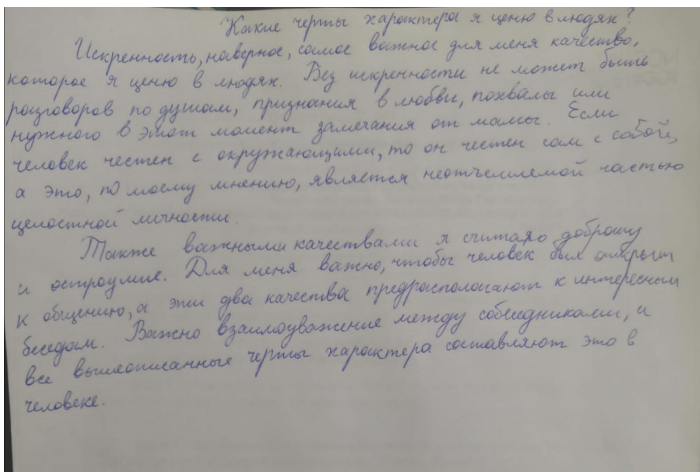 Какие черты характера я ценю в людях?
Искренность, наверное, самое важное для меня качество,
которое я ценю в людях. Без искренности не может быть
разговоров по душам, признания в любви, похвалы или
нужного в этот момент замечания от мамы. Если
человек честен с окружающими, то он честен сам с собой,
а это, по моему мнению, является неотъемлемой частью
целостной личности.
Также важными качествами я считаю доброту
и остроумие. Для меня важно, чтобы человек был открыт
к общению, а эти два качества предрасполагают к интересным
беседам. Важно взаимоуважение между собеседниками, и
все вышеописанные черты характера составляют это в
человеке.